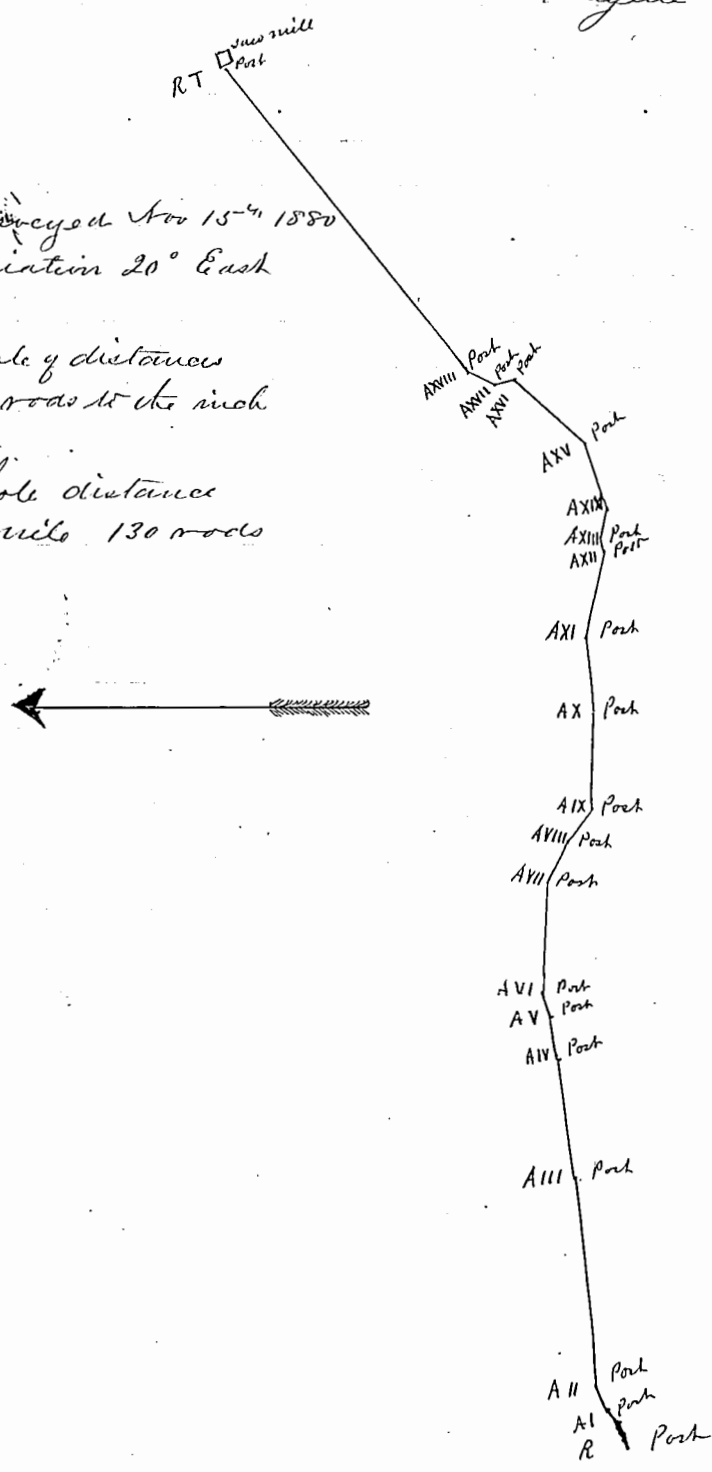 saw mill
Post
R T
veyed Nov 15th 1880
iation 20° East
le of distances
rods to the inch
ole distance
mile 130 rods
AXVIII Post
AXVII Post
AXVI Post
AXV Post
AXIX
AXIII Post
AXII Post
AXI Post
AX Post
AIX Post
AVIII Post
AVII Post
AVI Post
AV Post
AIV Post
AIII Post
AII Post
AI Post
R Post